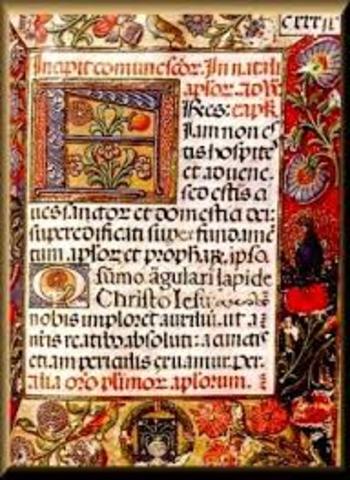 CXXXIX
Incipit comune scōr. In natali
apſor. ad vꝰꝝ
Fꝛēs: capl̄.
Iam non eſ
tis hoſpite
et aduene.
ſed eſtis ci
ues ſanctoꝛ et domeſtici dei:
ſuperedificati ſuper fundamē
tum apſoꝛ et prophaꝝ. ipſo
ſumo āgulari lapide
Chriſto Ieſu
nobis imploret auxiliū. ut a
nr̄is reatib̄ abſoluti: a cunctis
etiam periculis eruamur. per.
alia oro plimoꝛ apſorum.